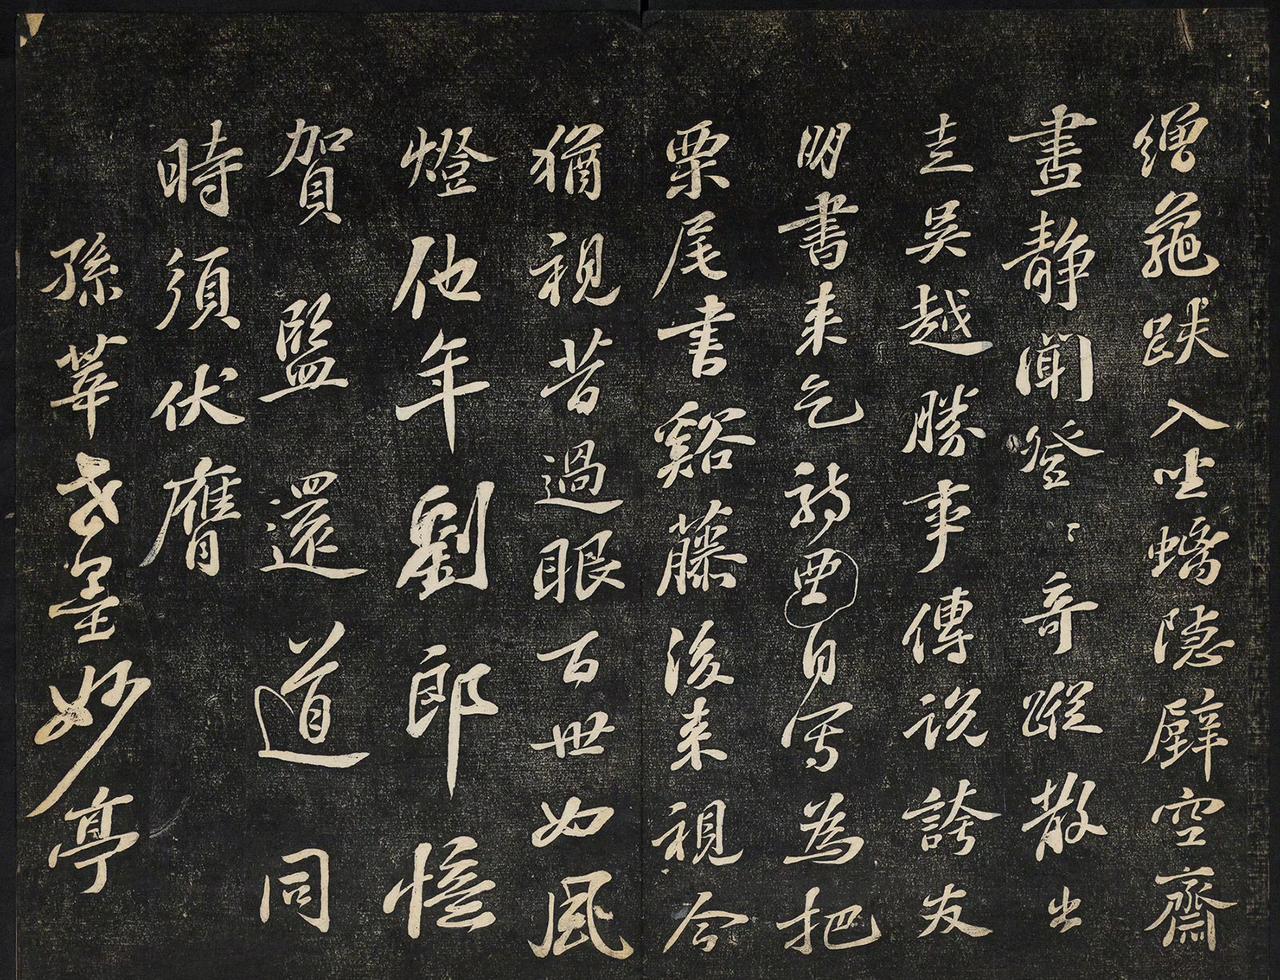 繒龜趺入坐螭隱壁空齋
晝靜聞登〻奇蹤散出
走吳越勝事傳說誇友
朋書來乞詩要自寫為把
栗尾書谿藤後來視今
猶視昔過眼百世如風
燈他年劉郎憶
賀監還道同
時須伏膺
孫莘老墨妙亭